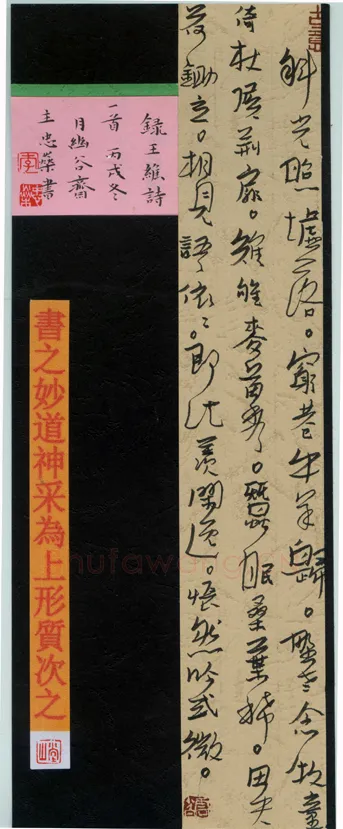 斜光照墟落。窮巷牛羊歸。野老念牧童
倚杖候荊扉。雉雊麥苗秀。蠶眠桑葉稀。田夫
荷鋤立。相見語依〻。即此羨閒逸。悵然吟式微。
錄王維詩
一首 丙戌冬
月幽谷齋
主忠榮書
書之妙道神采為上形質次之